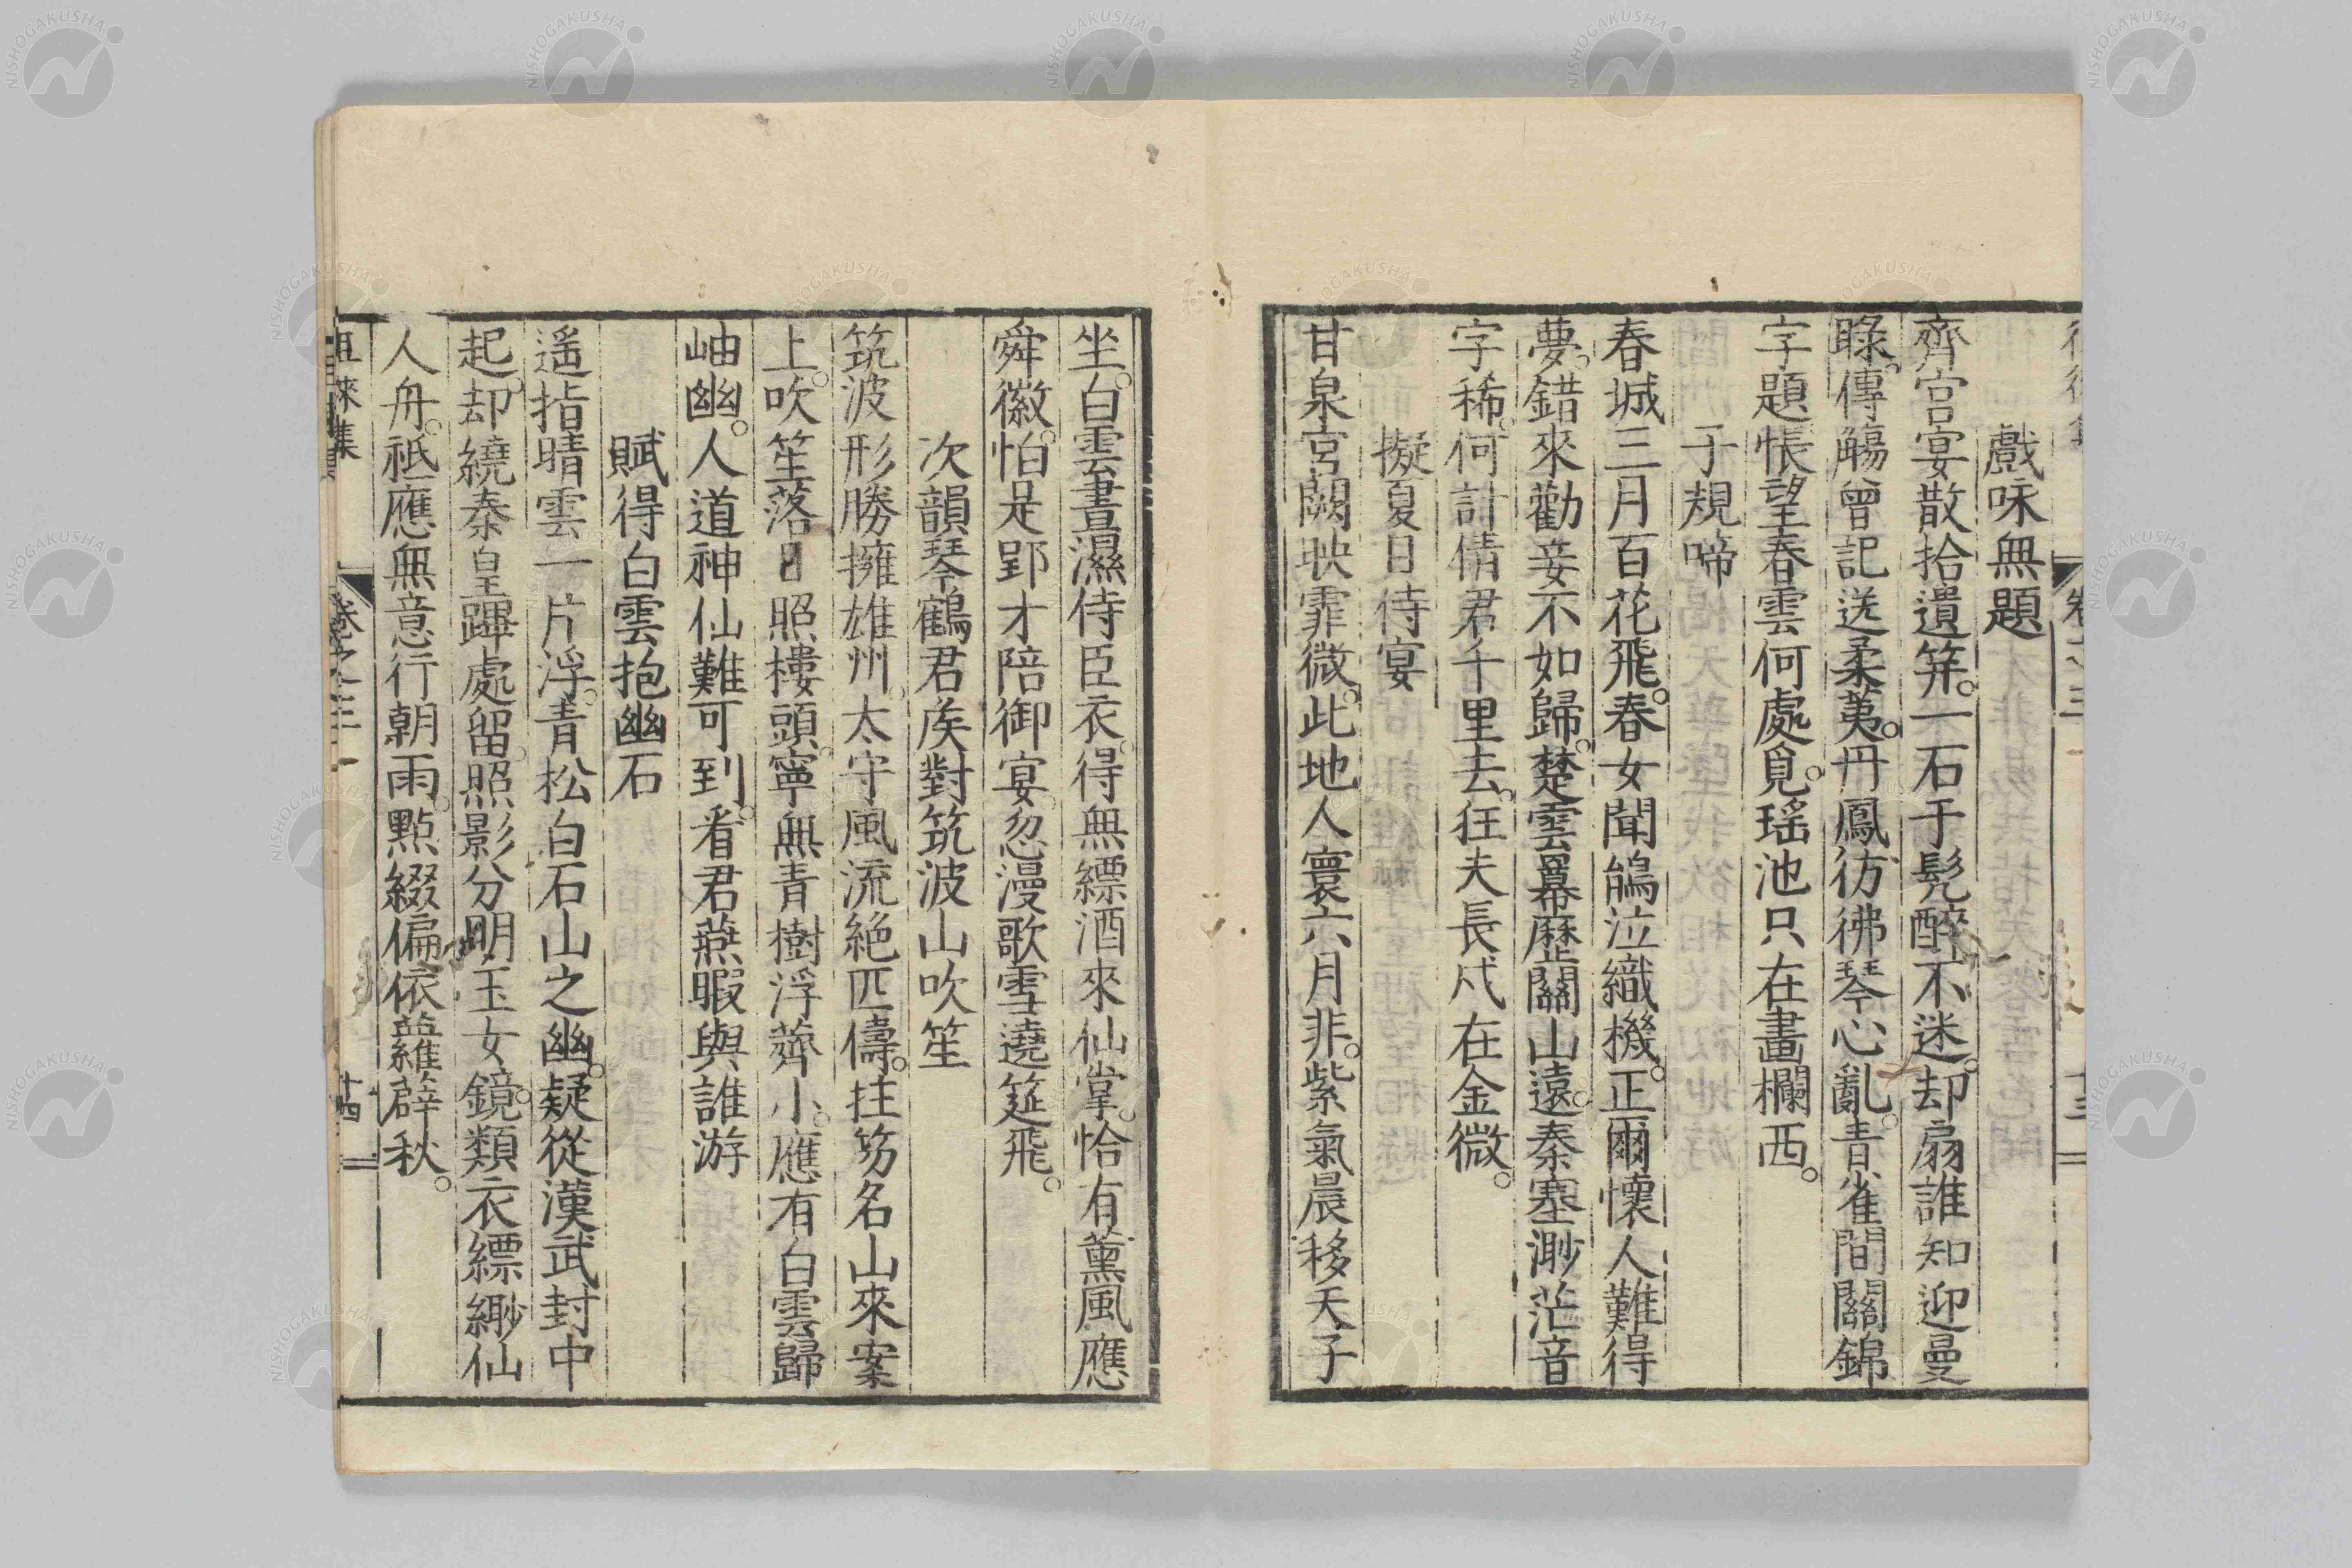 戲咏無題
齊宮宴散拾遺笄。一石于髡醉不迷。却扇誰知迎曼
睩。傳觴曾記送柔荑。丹鳳彷彿琴心亂。青雀間關錦
字題。悵望春雲何處覓。瑤池只在畫欄西。
子規啼
春城三月百花飛。春女聞鵃泣織機。正爾懷人難得
夢。錯來勸妾不如歸。楚雲羃歷關山遠。秦塞渺茫音
字稀。何計倩君千里去。狂夫長戍在金微。
擬夏日侍宴
甘泉宮闕映霏微。此地人寰六月非。紫氣晨移天子
坐。白雲晝濕侍臣衣。得無縹酒來仙掌。恰有薰風應
舜徽。怕是郢才陪御宴。忽漫歌雪遶筵飛。
次韻琴鶴君矦對筑波山吹笙
筑波形勝擁雄州。太守風流絶匹儔。拄笏名山來案
上。吹笙落日照樓頭。寧無青樹浮薺小。應有白雲歸
岫幽。人道神仙難可到。看君燕暇與誰游
賦得白雲抱幽石
遥指晴雲一片浮。青松白石山之幽。疑從漢武封中
起。却繞秦皇蹕處留。照影分明玉女鏡。類衣縹緲仙
人舟。祗應無意行朝雨。點綴偏依蘿薜秋。
徂徠集
卷之三
十四